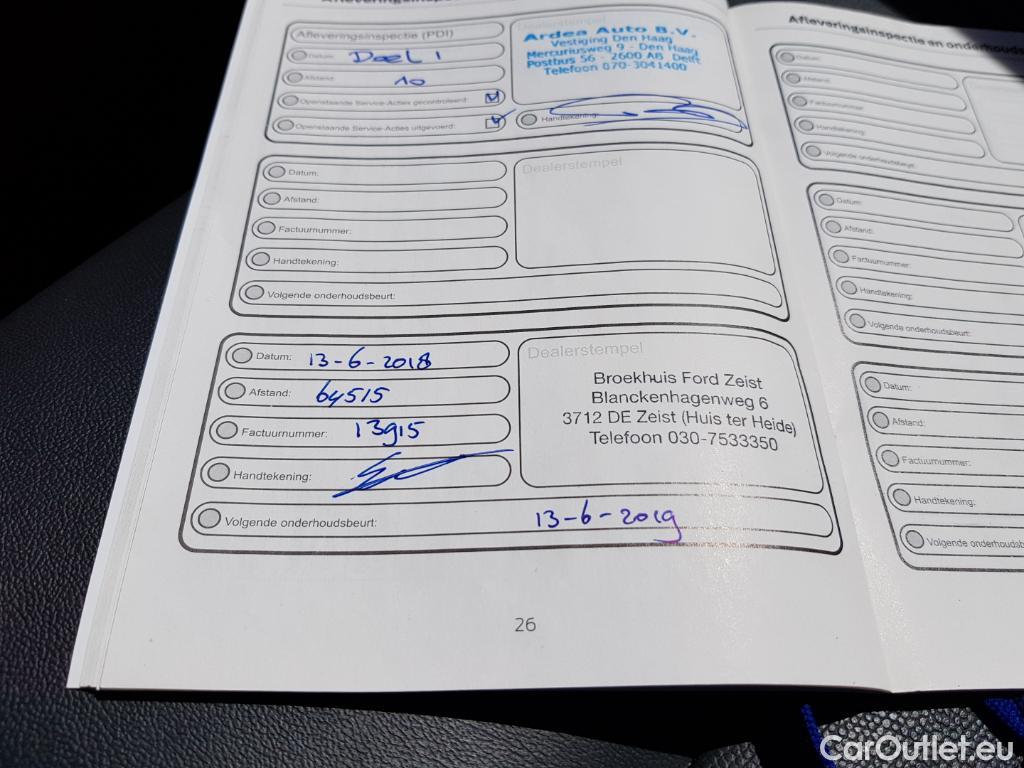 Afleveringsinspec
Afleveringsinspectie (PDI)
Datum: Deel 1
Afstand: 10
Openstaande Service-Acties gecontroleerd:
Openstaande Service-Acties uitgevoerd:
Dealerstempel
Ardea Auto B.V.
Vestiging Den Haag
Mercuriusweg 9 - Den Haag
Postbus 56 - 2600 AB Delft
Telefoon 070-3041400
Handtekening:
Datum:
Afstand:
Factuurnummer:
Handtekening:
Volgende onderhoudsbeurt:
Dealerstempel
Datum: 13-6-2018
Afstand: 64515
Factuurnummer: 13915
Handtekening:
Volgende onderhoudsbeurt: 13-6-2019
Dealerstempel
Broekhuis Ford Zeist
Blanckenhagenweg 6
3712 DE Zeist (Huis ter Heide)
Telefoon 030-7533350
26
Afleveringsinspectie en onderhouds
Datum:
Afstand:
Factuurnummer:
Handtekening:
Volgende onderhoudsbeurt:
Datum:
Afstand:
Factuurnummer:
Handtekening:
Volgende onderhoudsbeurt:
Datum:
Afstand:
Factuurnummer:
Handtekening:
Volgende onderhoudsb
CarOutlet.eu